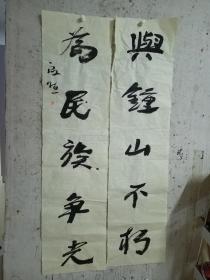 與鍾山不朽
為民族争光